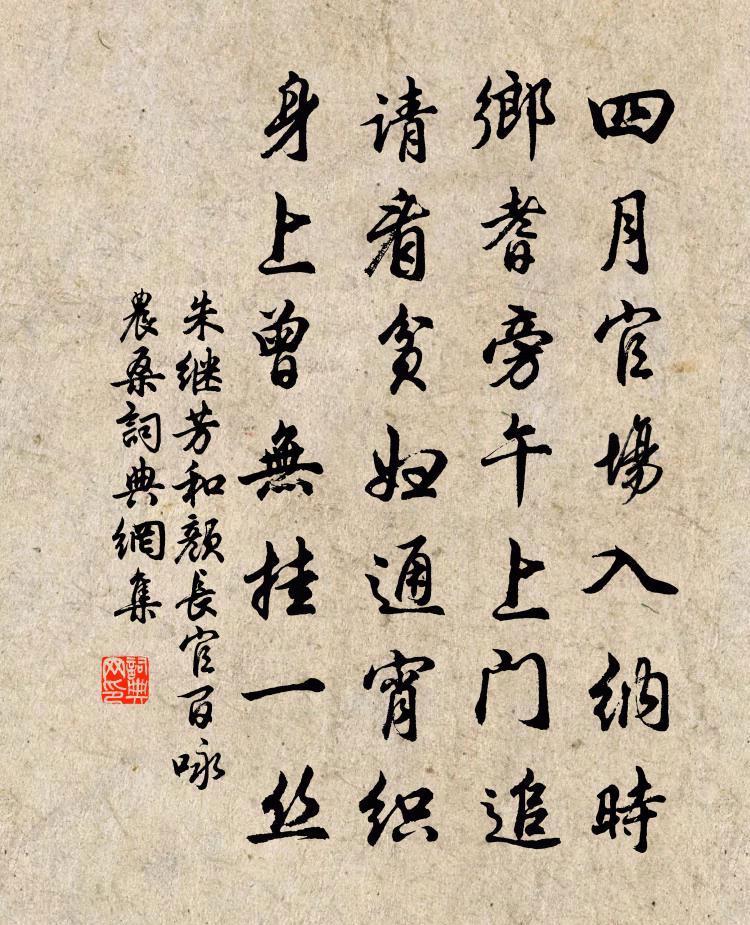 四月官場入纳時
鄉耆旁午上门追
请看贫妇通宵织
身上曾無挂一丝
朱继芳和顏長官百咏
農桑詞典網集
詞典網印